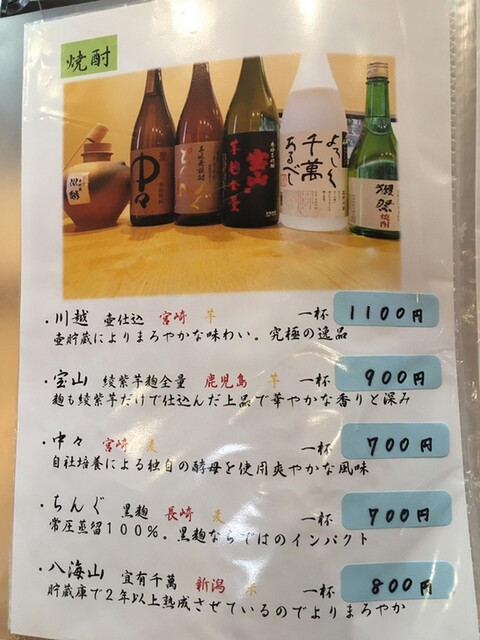 焼酎
中々
ちんぐ
宝山
芋麹全量
よろしく
千萬
あるべし
獺祭
焼酎
・川越 壷仕込 宮崎 芋 一杯 1100円
壷貯蔵によりまろやかな味わい。究極の逸品
・宝山 綾紫芋麹全量 鹿児島 芋 一杯 900円
麹も綾紫芋だけで仕込んだ上品で華やかな香りと深み
・中々 宮崎 麦 一杯 700円
自社培養による独自の酵母を使用爽やかな風味
・ちんぐ 黒麹 長崎 麦 一杯 700円
常圧蒸留100%。黒麹ならではのインパクト
・八海山 宜有千萬 新潟 米 一杯 800円
貯蔵庫で2年以上熟成させているのでよりまろやか